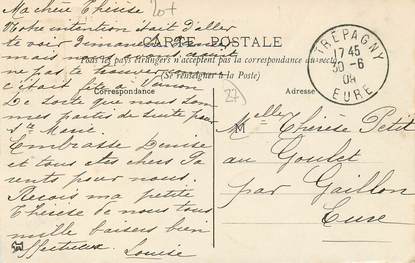 Ma chère Thérèse
Notre intention était d'aller
te voir dimanche
CARTE POSTALE
mais
Tous les pays étrangers n'acceptent pas la correspondance au recto
(Se renseigner à la Poste)
ne pas te trouver
c'était fête à Vernon
Correspondance
Adresse
De sorte que nous som
mes parties de suite pour
Ste Marie.
Embrasse Denise
et tous tes chers Pa
rents pour nous.
Reçois ma petite
Thérèse de nous tous
mille baisers bien
affectueux. Louise
TRÉPAGNY
17 45
30 -6
09
EURE
27
Melle Thérèse Petit
au Goulet
par Gaillon
Eure